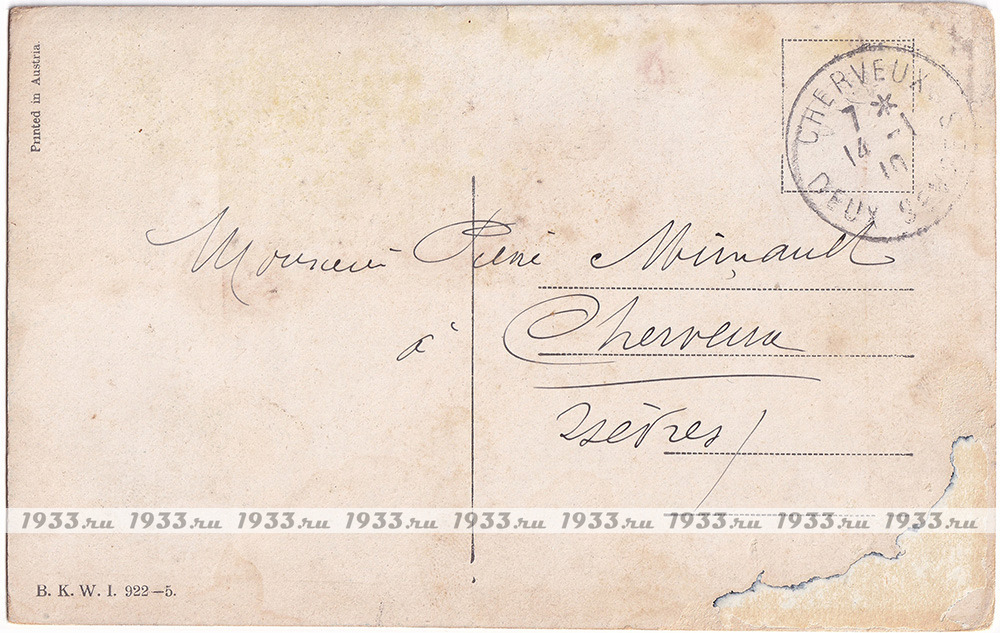 Printed in Austria.
CHERVEUX
7 * 1
14 10
DEUX SÈVRES
Monsieur Pierre
à Cherveux
2 Sèvres
1933.ru 1933.ru 1933.ru 1933.ru 1933.ru 1933.ru 1933.ru 1933.ru 1933.ru
B. K. W. I. 922–5.